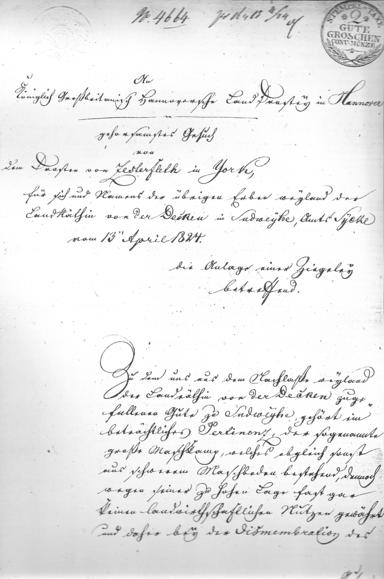 No. 4664
STEMPEL-TAXE
2
GUTE
GROSCHEN
CONV. MÜNZE
An
Königlich Großbritannisch Hannoversche Land Drostey in Hannover
gehorsamstes Gesuch
von
dem Drosten von Zesterfleth in York,
für sich und Namens der übrigen Erben weyland der
Landräthin von der Decken in Sudweyhe, Amts Sycke
vom 13ten April 1824.
die Anlage einer Ziegeley
betreffend.
Zu dem uns aus dem Nachlaße weyland
der Landräthin von der Decken zuge-
fallenen Gute zu Sudweyhe, gehört im
beträchtliches Pertinenz, der sogenannte
große Maschkamp, welches obgleich sonst
aus schwerem Maschboden bestehend, dennoch
wegen seiner zu hohen Lage fast gar
keinen landwirthschaftlichen Nutzen gewährt
und daher bey der Dismembration des